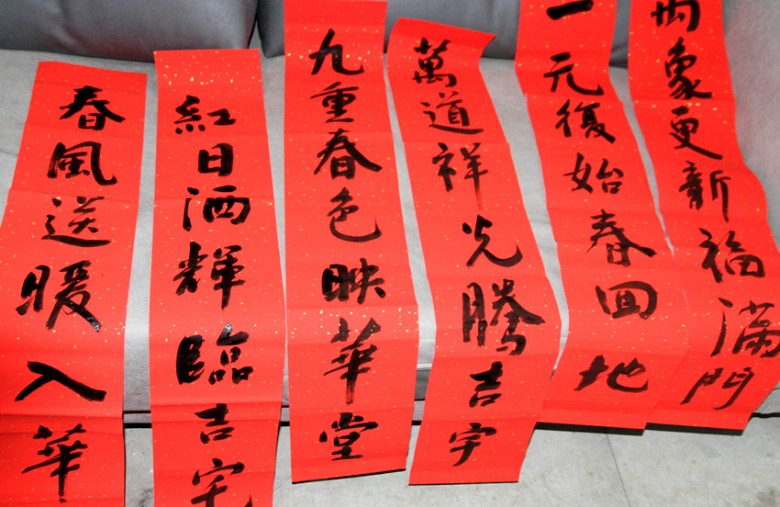 春風送暖入華
紅日洒輝臨吉宇
九重春色映華堂
萬道祥光騰吉宇
一元復始春回地
象更新福滿門